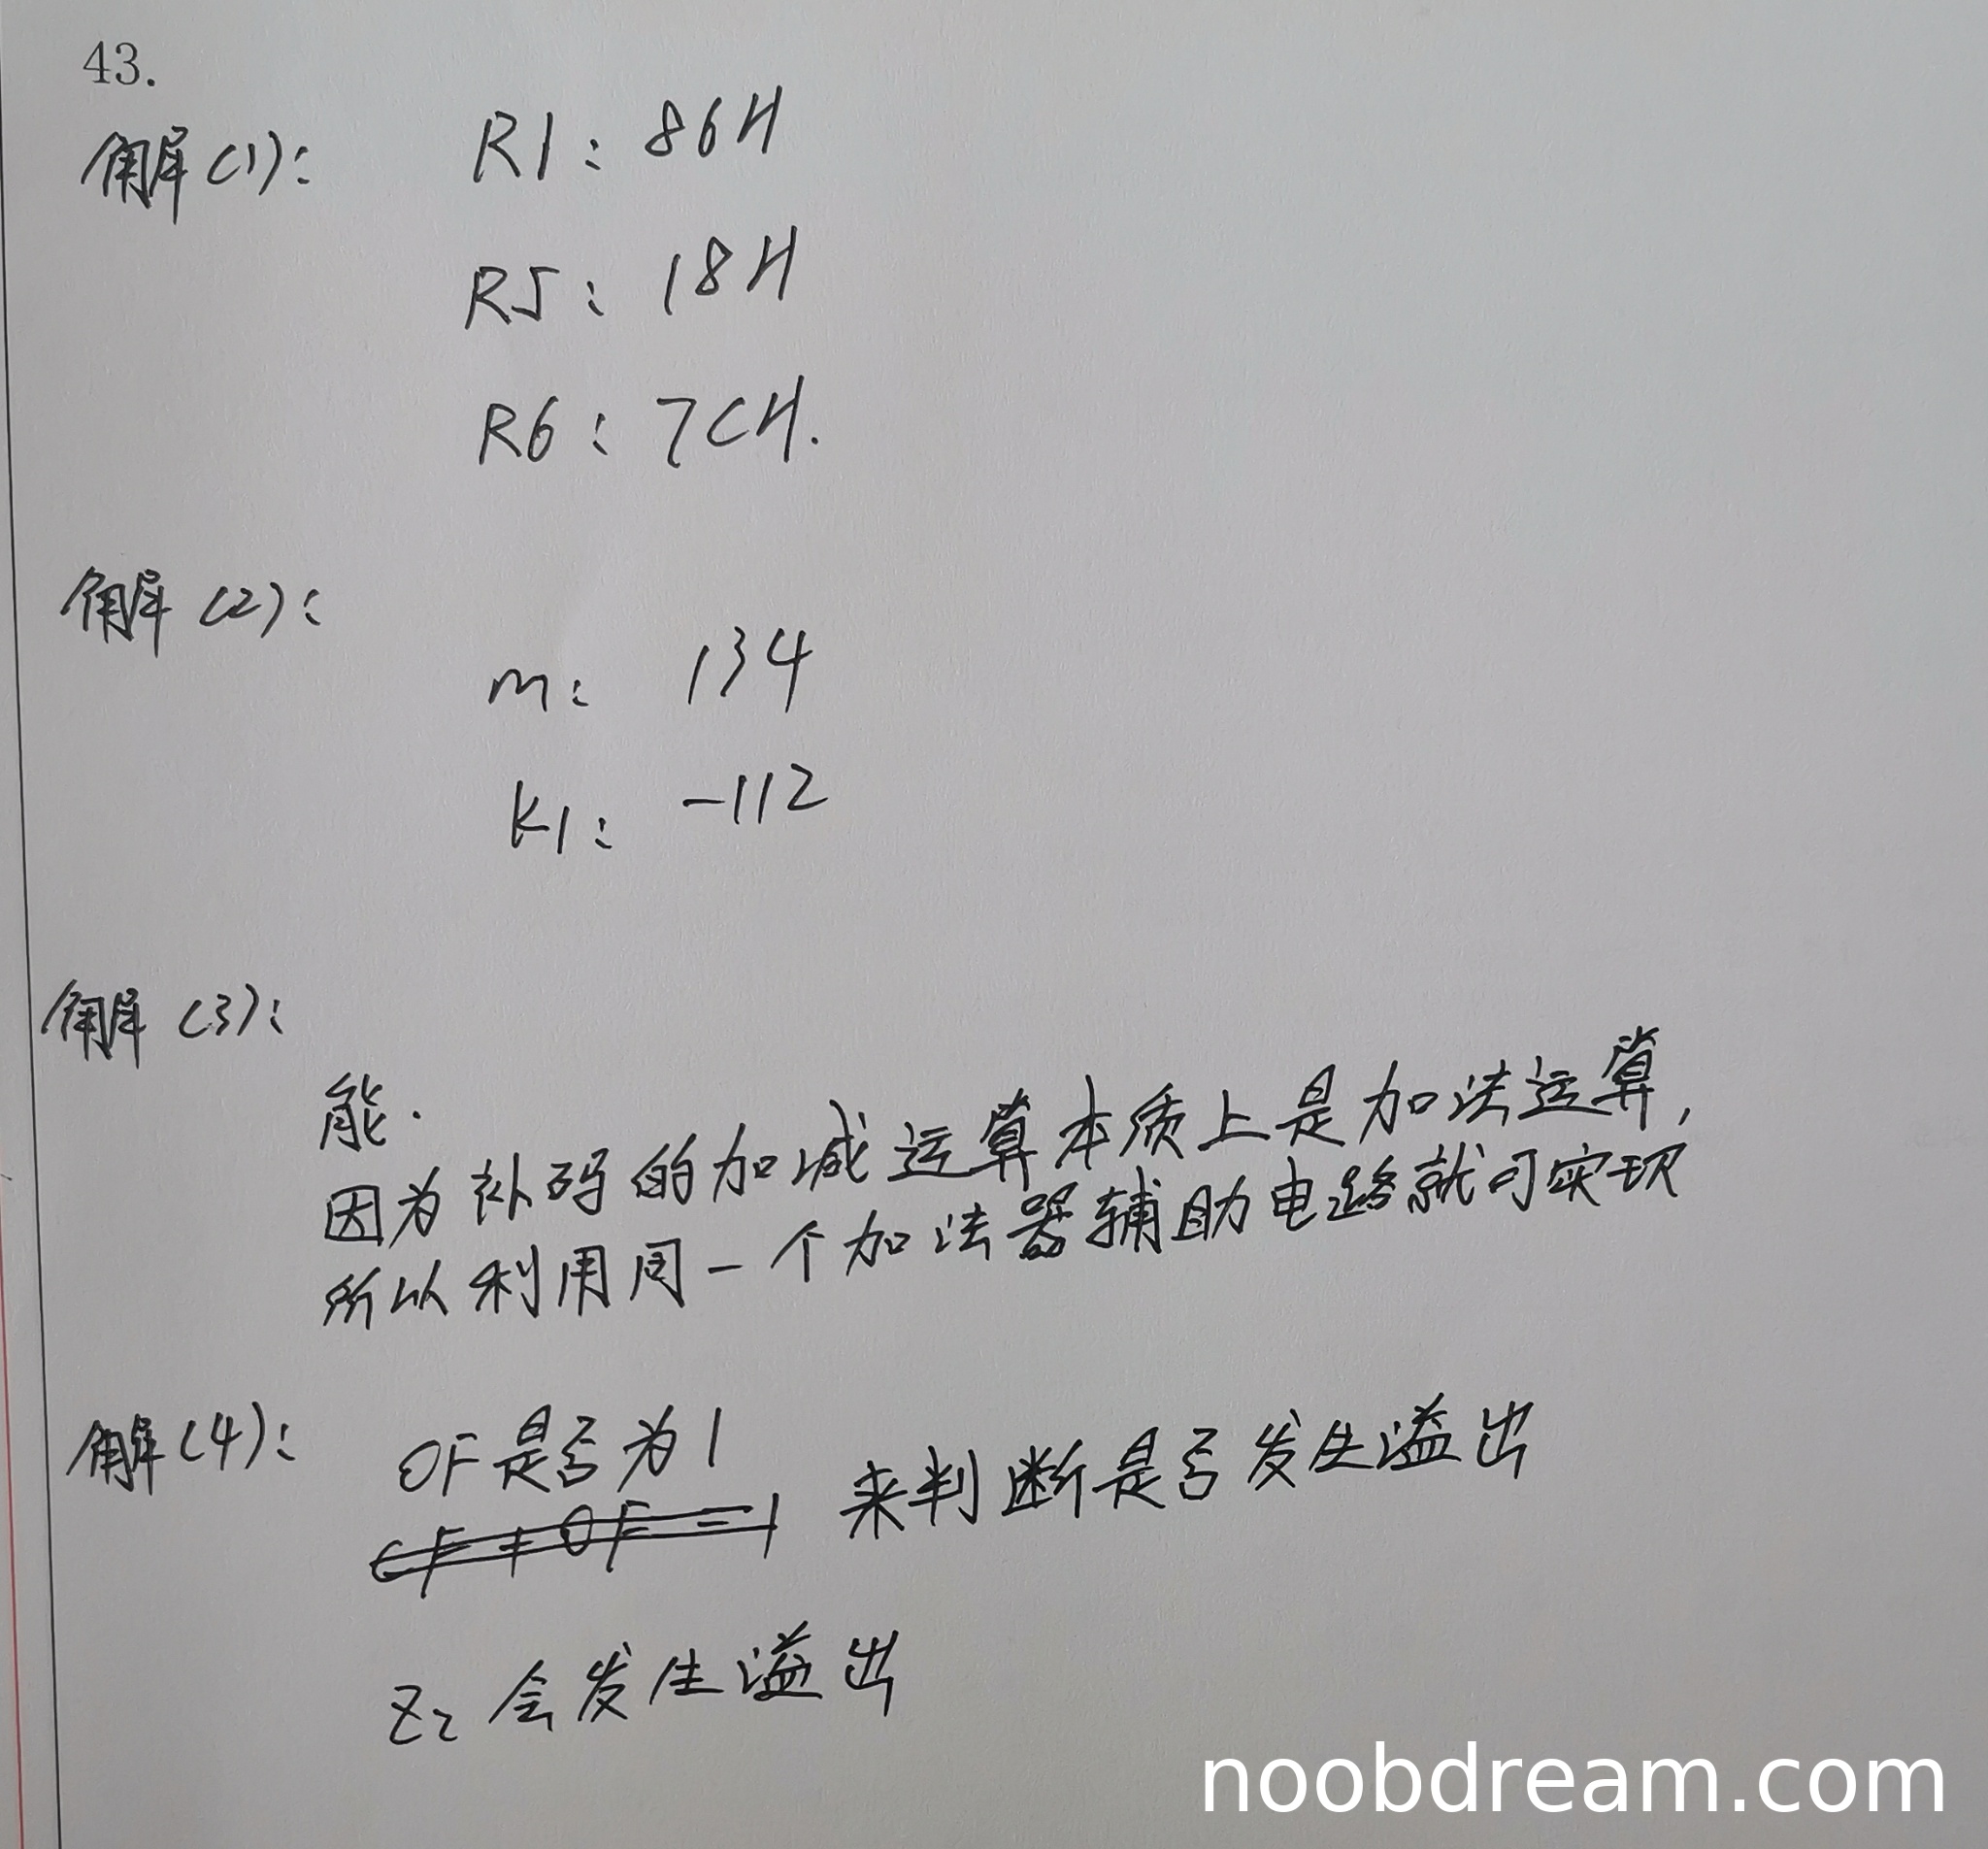 43.
解(1): R1: 86H
R5: 18H
R6: 7CH.
解(2):
m: 134
K1: -112
解(3):
能.
因为补码的加减运算本质上是加法运算,
所以利用同一个加法器辅助电路就可实现
解(4): OF是否为1
CF + OF = 1 来判断是否发生溢出
Z2 会发生溢出
noobdream.com